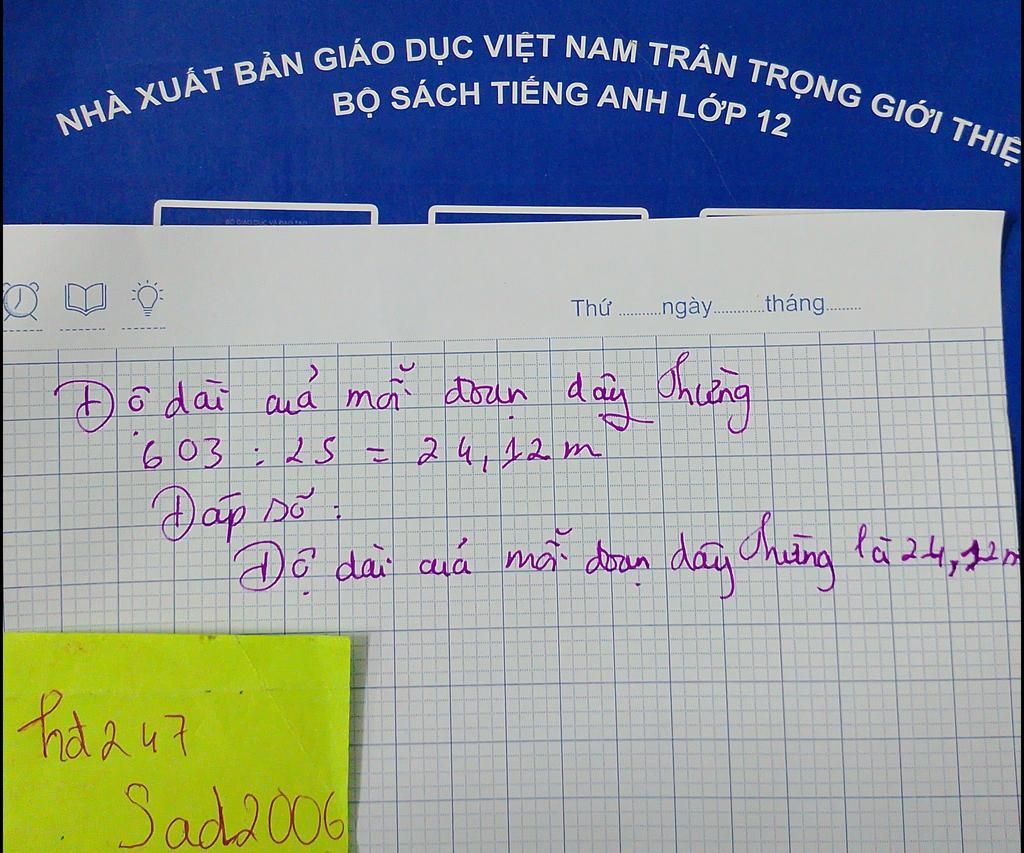 NHÀ XUẤT BẢN GIÁO DỤC VIỆT NAM TRÂN TRỌNG GIỚI THIỆ
BỘ SÁCH TIẾNG ANH LỚP 12
BỘ GIÁO DỤC VÀ ĐÀO TẠO
Thứ ..........ngày............tháng........
Độ dài cuả mỗi đoạn dây thừng
603 : 25 = 24,12 m
Đáp số :
Độ dài cuả mỗi đoạn dây thừng là 24,12 m
hd247
Sad2006